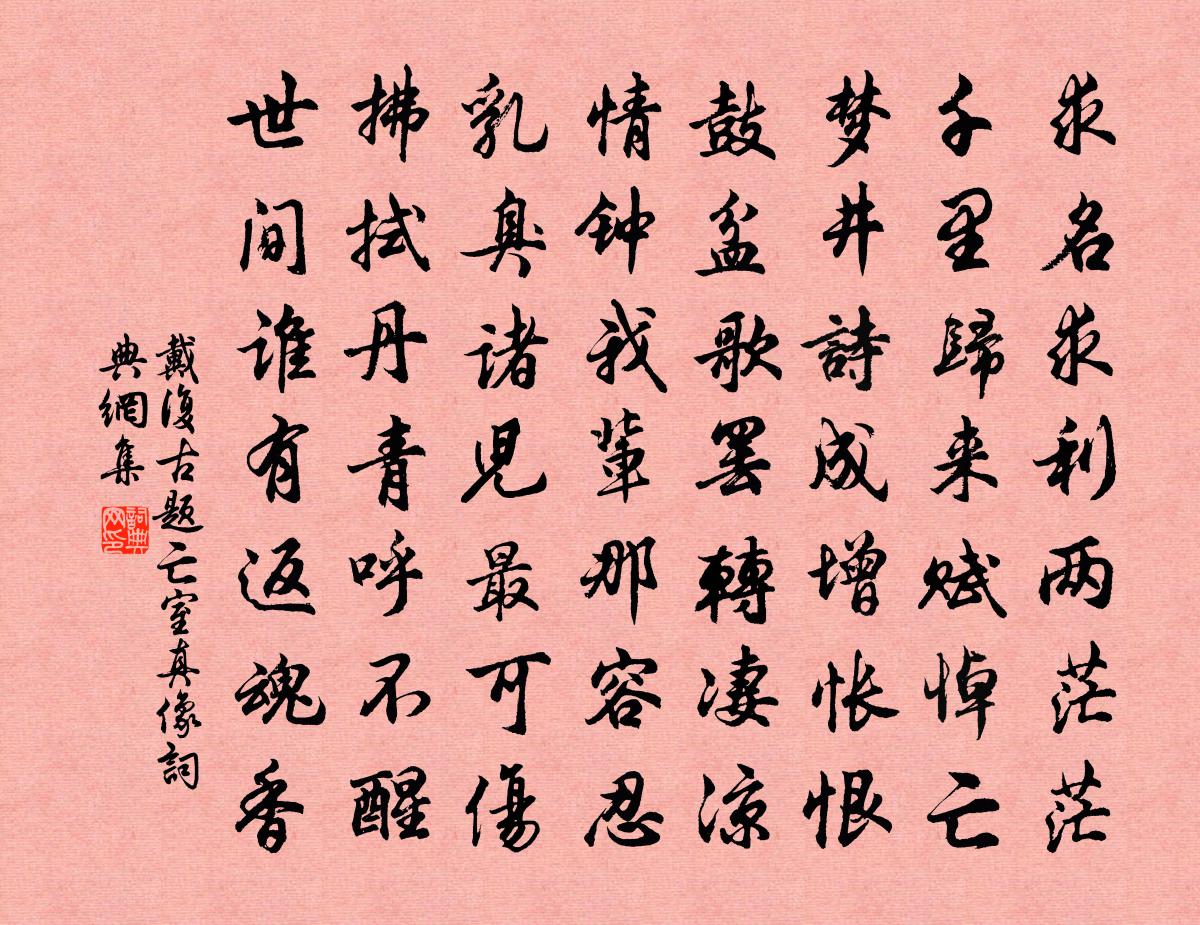 求名求利两茫茫
千里歸来赋悼亡
梦井詩成增怅恨
鼓盆歌罢轉凄凉
情钟我輩那容忍
乳臭诸児最可傷
拂拭丹青呼不醒
世间谁有返魂香
戴復古题亡室真像詞
典網集
詞典网印